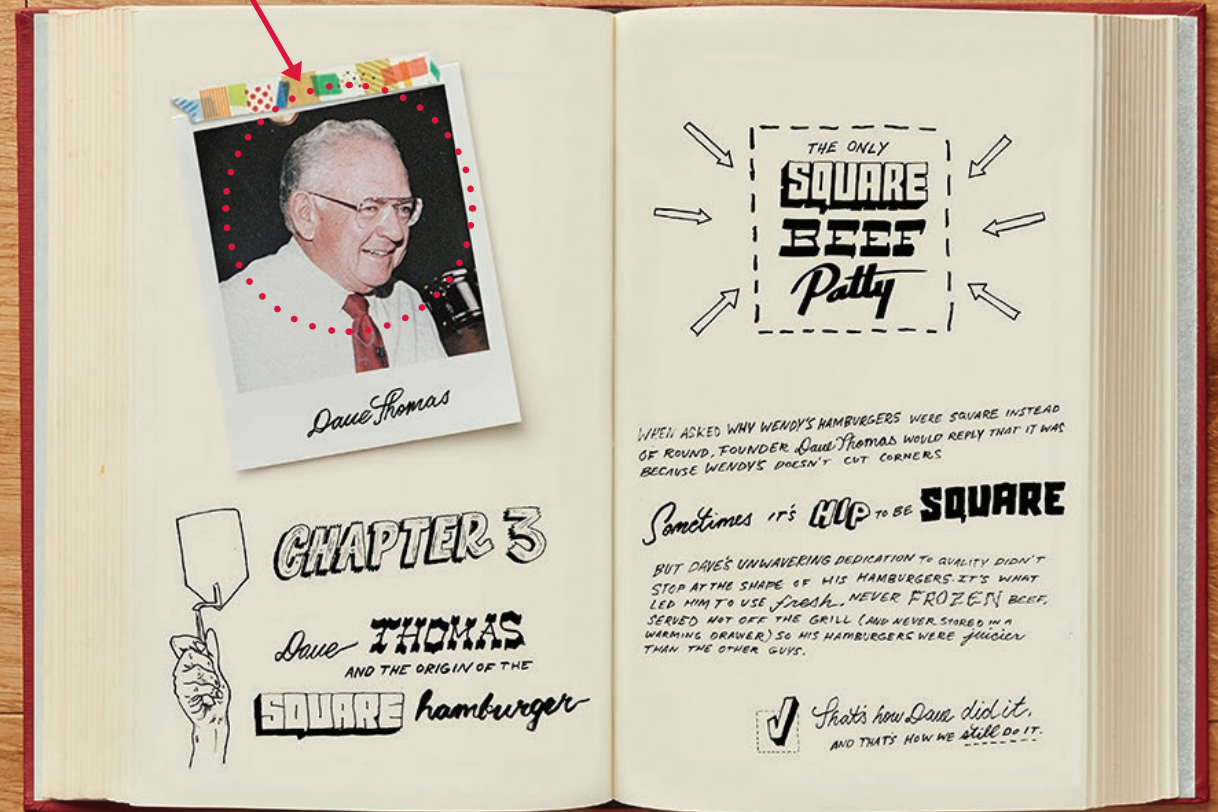 Dave Thomas
CHAPTER 3
Dave THOMAS
AND THE ORIGIN OF THE
SQUARE hamburger
THE ONLY
SQUARE
BEEF
Patty
WHEN ASKED WHY WENDY'S HAMBURGERS WERE SQUARE INSTEAD
OF ROUND, FOUNDER Dave Thomas WOULD REPLY THAT IT WAS
BECAUSE WENDY'S DOESN'T CUT CORNERS
Sometimes IT'S HIP TO BE SQUARE
BUT DAVE'S UNWAVERING DEDICATION TO QUALITY DIDN'T
STOP AT THE SHAPE OF HIS HAMBURGERS. IT'S WHAT
LED HIM TO USE fresh, NEVER FROZEN BEEF,
SERVED HOT OFF THE GRILL (AND NEVER STORED IN A
WARMING DRAWER) SO HIS HAMBURGERS WERE juicier
THAN THE OTHER GUYS.
That's how Dave did it,
AND THAT'S HOW WE still DO IT.